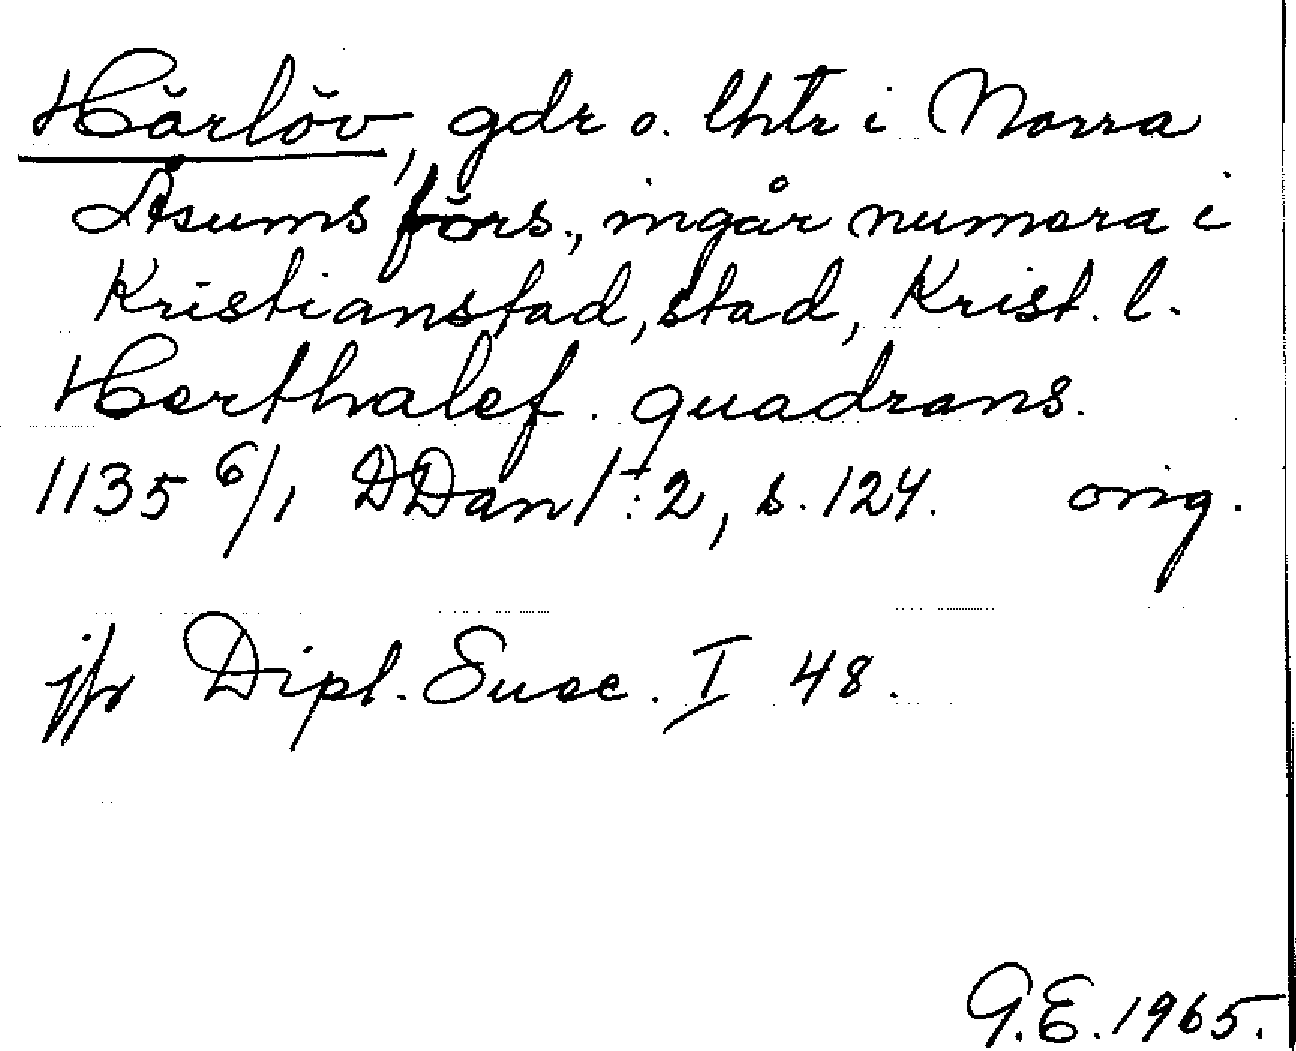 Härlöv, gdr o. lhtr i Norra
Åsums förs., ingår numera i
Kristianstad, stad, Krist. l.
Herthalef. quadrans.
1135 6/1 DDan I:2, s. 124. orig.
jfr Dipl. Suec. I 48.
G.E. 1965.